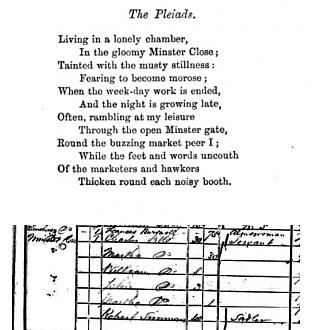 The Pleiads.
Living in a lonely chamber,
In the gloomy Minster Close;
Tainted with the musty stillness:
Fearing to become morose;
When the week-day work is ended,
And the night is growing late,
Often, rambling at my leisure
Through the open Minster gate,
Round the buzzing market peer I;
While the feet and words uncouth
Of the marketers and hawkers
Thicken round each noisy booth.
Almswoman
Charles 30 Servant
Martha Do 30
William Do 8
Do 3
Martha Do 1
Robert Sadler